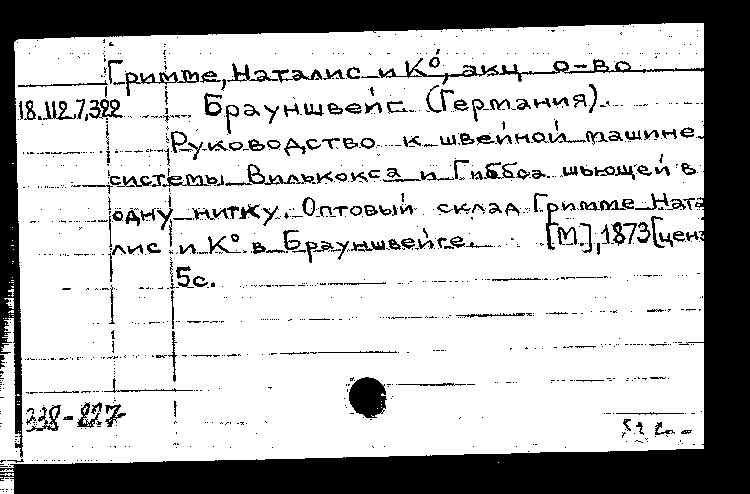 Гримме, Наталис и К°, акц. о-во
18.112.7,322 Брауншвейг (Германия).
Руководство к швейной машине
системы Вилькокса и Гиббса шьющей в
одну нитку. Оптовый склад Гримме Ната
лис и К° в Брауншвейге. [М.], 1873 [ценз
5с.
338-827